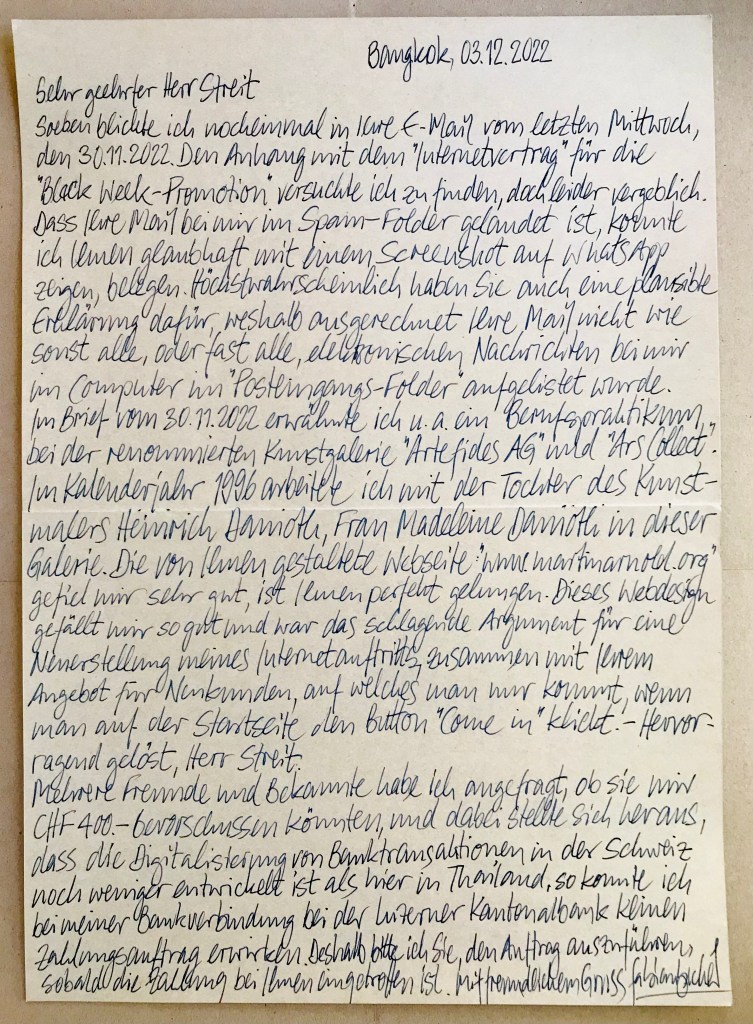 Bangkok, 03.12.2022
Sehr geehrter Herr Streit
Soeben blickte ich nocheinmal in Ihre E-Mail vom letzten Mittwoch,
den 30.11.2022. Den Anhang mit dem "Internetvertrag" für die
"Black Week-Promotion" versuchte ich zu finden, doch leider vergeblich.
Dass Ihre Mail bei mir im Spam-Folder gelandet ist, konnte
ich Ihnen glaubhaft mit einem Screenshot auf WhatsApp
zeigen, belegen. Höchstwahrscheinlich haben Sie auch eine plausible
Erklärung dafür, weshalb ausgerechnet Ihre Mail nicht wie
sonst alle, oder fast alle, elektronischen Nachrichten bei mir
im Computer im "Posteingangs-Folder" aufgelistet wurde.
Im Brief vom 30.11.2022 erwähnte ich u.a. ein Berufspraktikum,
bei der renommierten Kunstgalerie "Artefides AG" und "Ars Collect".
Im Kalenderjahr 1996 arbeitete ich mit der Tochter des Kunst-
malers Heinrich Danioth, Frau Madeleine Danioth in dieser
Galerie. Die von Ihnen gestaltete Webseite: "www.martinarnold.org"
gefiel mir sehr gut, ist Ihnen perfekt gelungen. Dieses Webdesign
gefällt mir so gut und war das schlagende Argument für eine
Neuerstellung meines Internetauftritts, zusammen mit Ihrem
Angebot für Neukunden, auf welches man nur kommt, wenn
man auf der Startseite den Button "Come in" klickt. - Hervor-
ragend gelöst, Herr Streit.
Mehrere Freunde und Bekannte habe ich angefragt, ob sie mir
CHF 400.- bevorschussen könnten, und dabei stellte sich heraus,
dass die Digitalisierung von Banktransaktionen in der Schweiz
noch weniger entwickelt ist als hier in Thailand, so konnte ich
bei meiner Bankverbindung bei der Luzerner Kantonalbank keinen
Zahlungsauftrag erwirken. Deshalb bitte ich Sie, den Auftrag auszuführen,
sobald die Zahlung bei Ihnen eingetroffen ist. Mit freundlichem Gruss,